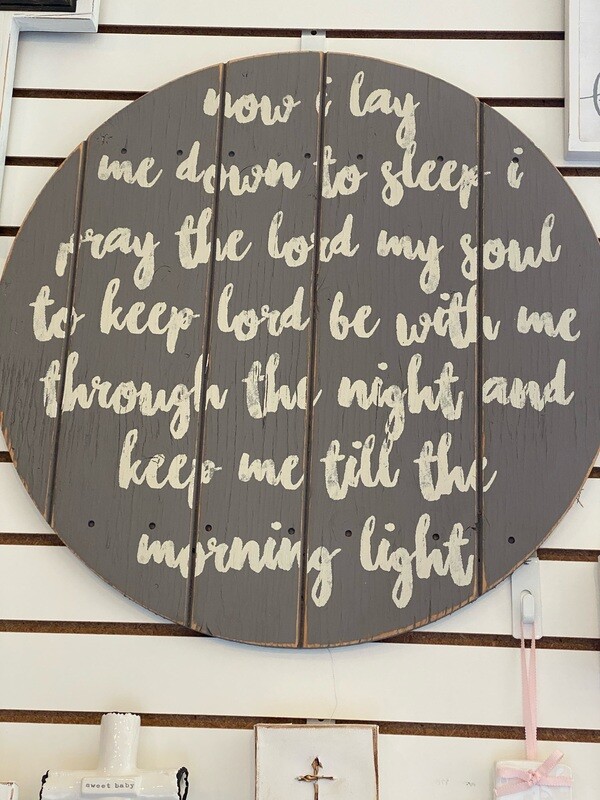 now i lay
me down to sleep i
pray the lord my soul
to keep lord be with me
through the night and
keep me till the
morning light
sweet baby